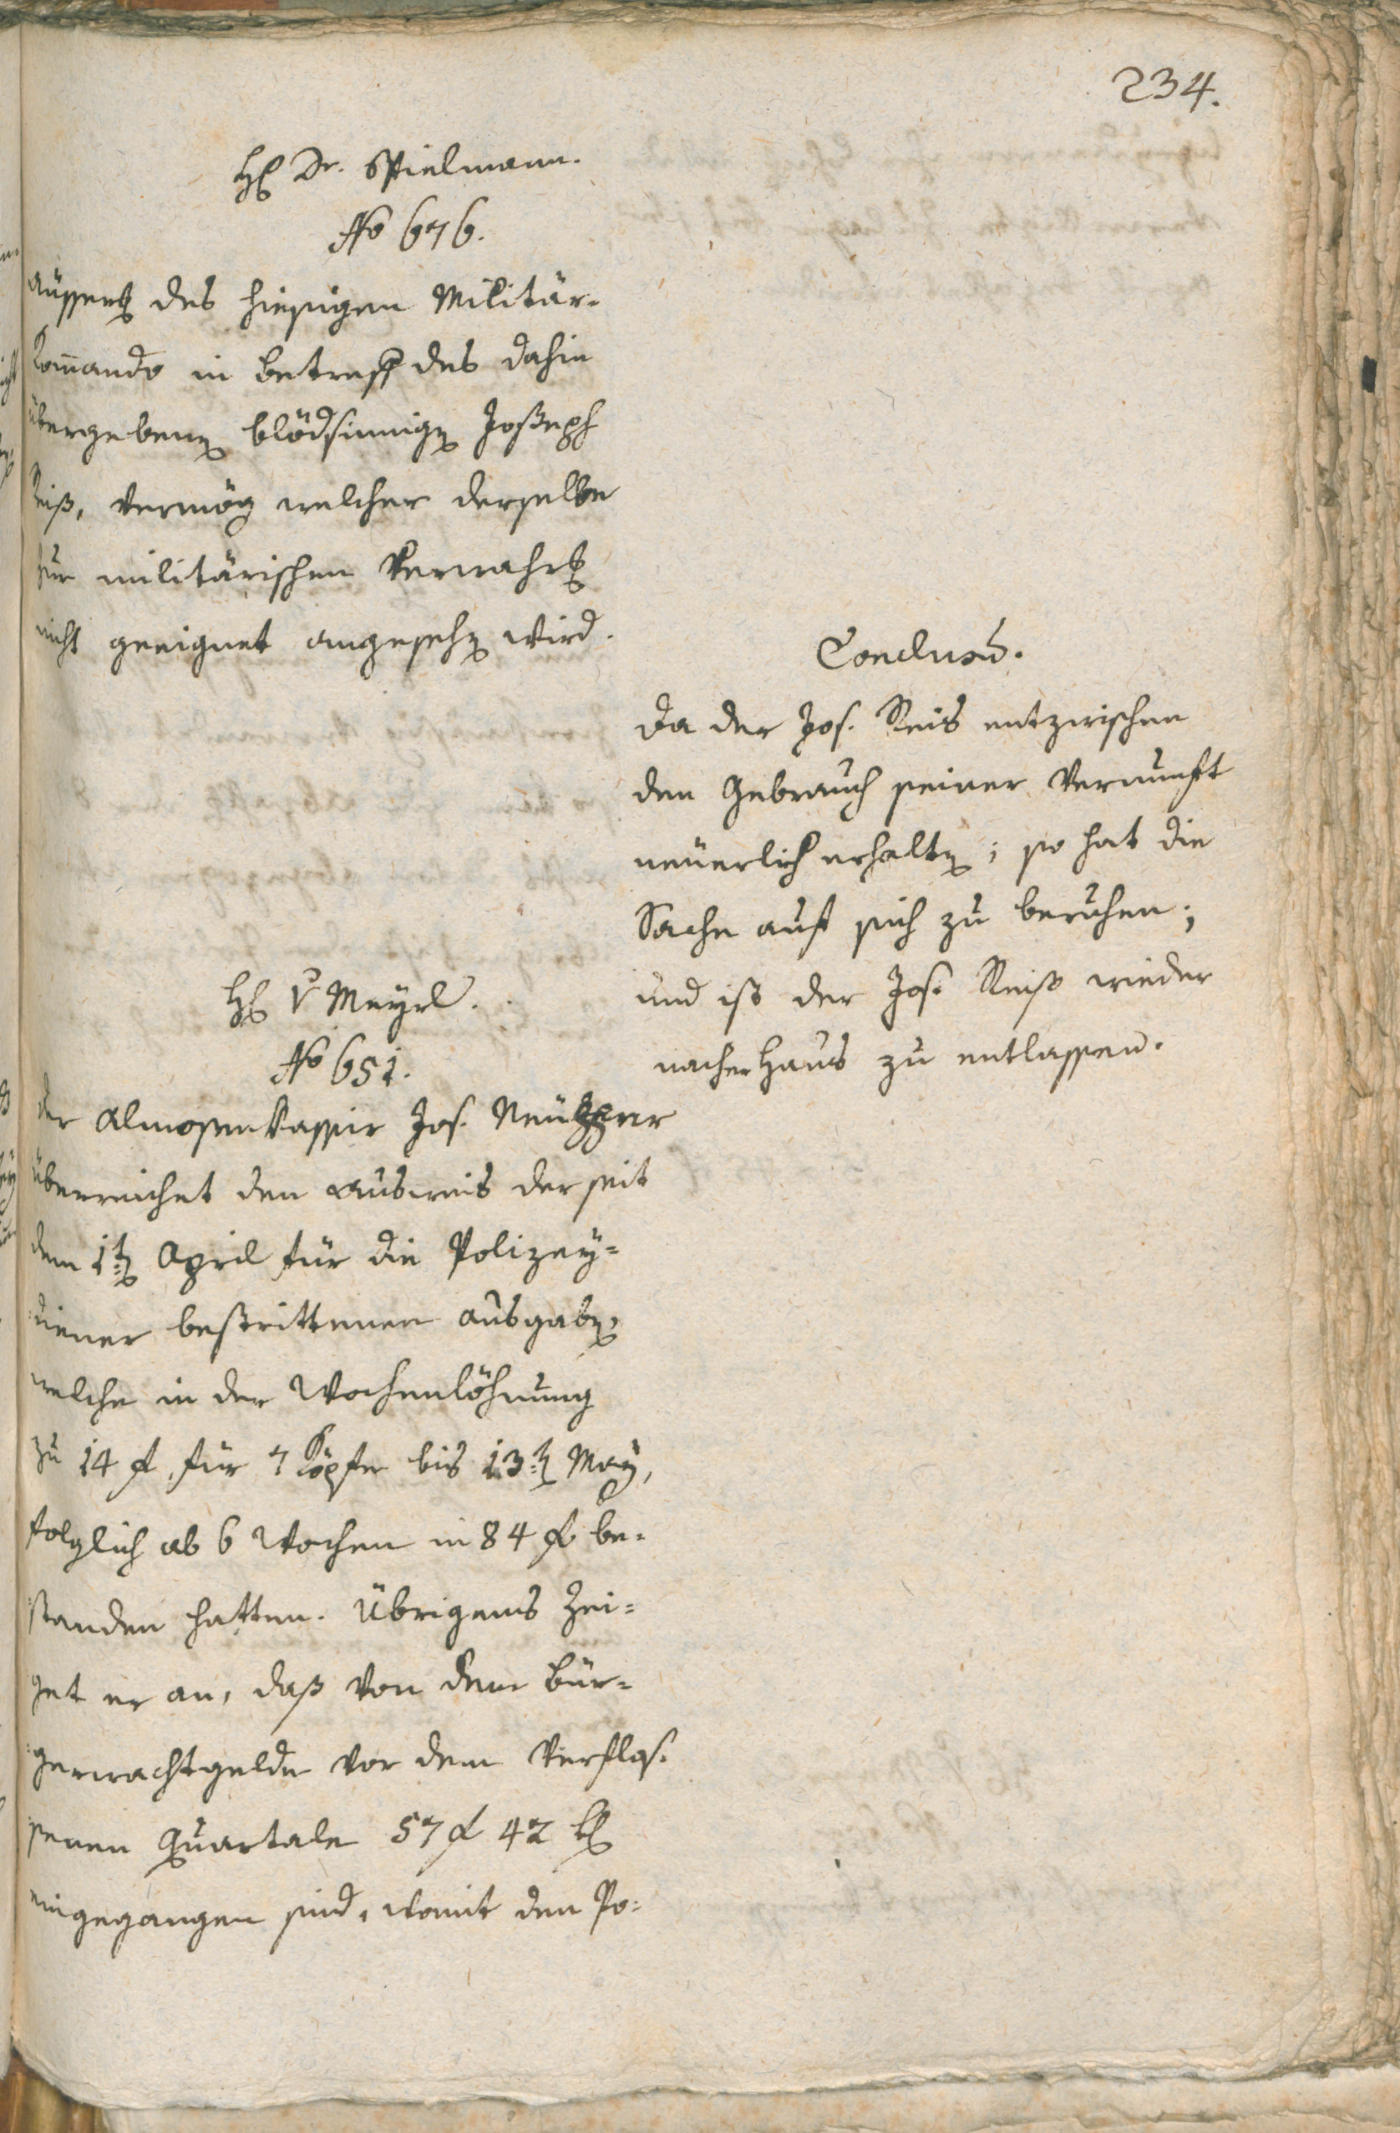 234.
H Dr. Spielmann.
No 676.
äusserg des hiesigen Militär-
Commando in betreff des dahin
übergebenen blödsinnigen Joseph
Reiß, vermög welcher derselbe
zur militärischen Verwahrg
nicht geeignet angesehen wird.
Conclusum.
Da der Jos. Reis entzwischen
den Gebrauch seiner Vernunft
neuerlich erhalten; so hat die
Sache auf sich zu beruhen;
und ist der Jos. Reiß wieder
nacher Haus zu entlassen.
H v Mayrl.
No 651.
der Almosenkassir Jos.
überreichet den Ausweis der seit
dem 1ten April für die Polizey-
diener bestrittenen Ausgaben,
welche in der Wochenlöhnung
zu 14 f für 7 Köpfe bis 13ten May,
folglich ab 6 Wochen in 84 f be-
standen hatten. Übrigens zei-
get er an, daß von dem Bür-
gerwachtgelde vor dem verflos-
senen Quartale 57 f 42 k
eingegangen sind, womit den Po-